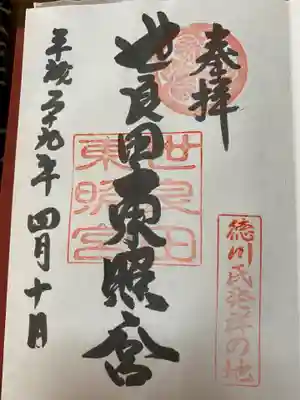 奉拝
徳川氏発祥の地
世良田東照宮
世良田
東照宮
平成二十九年四月十日